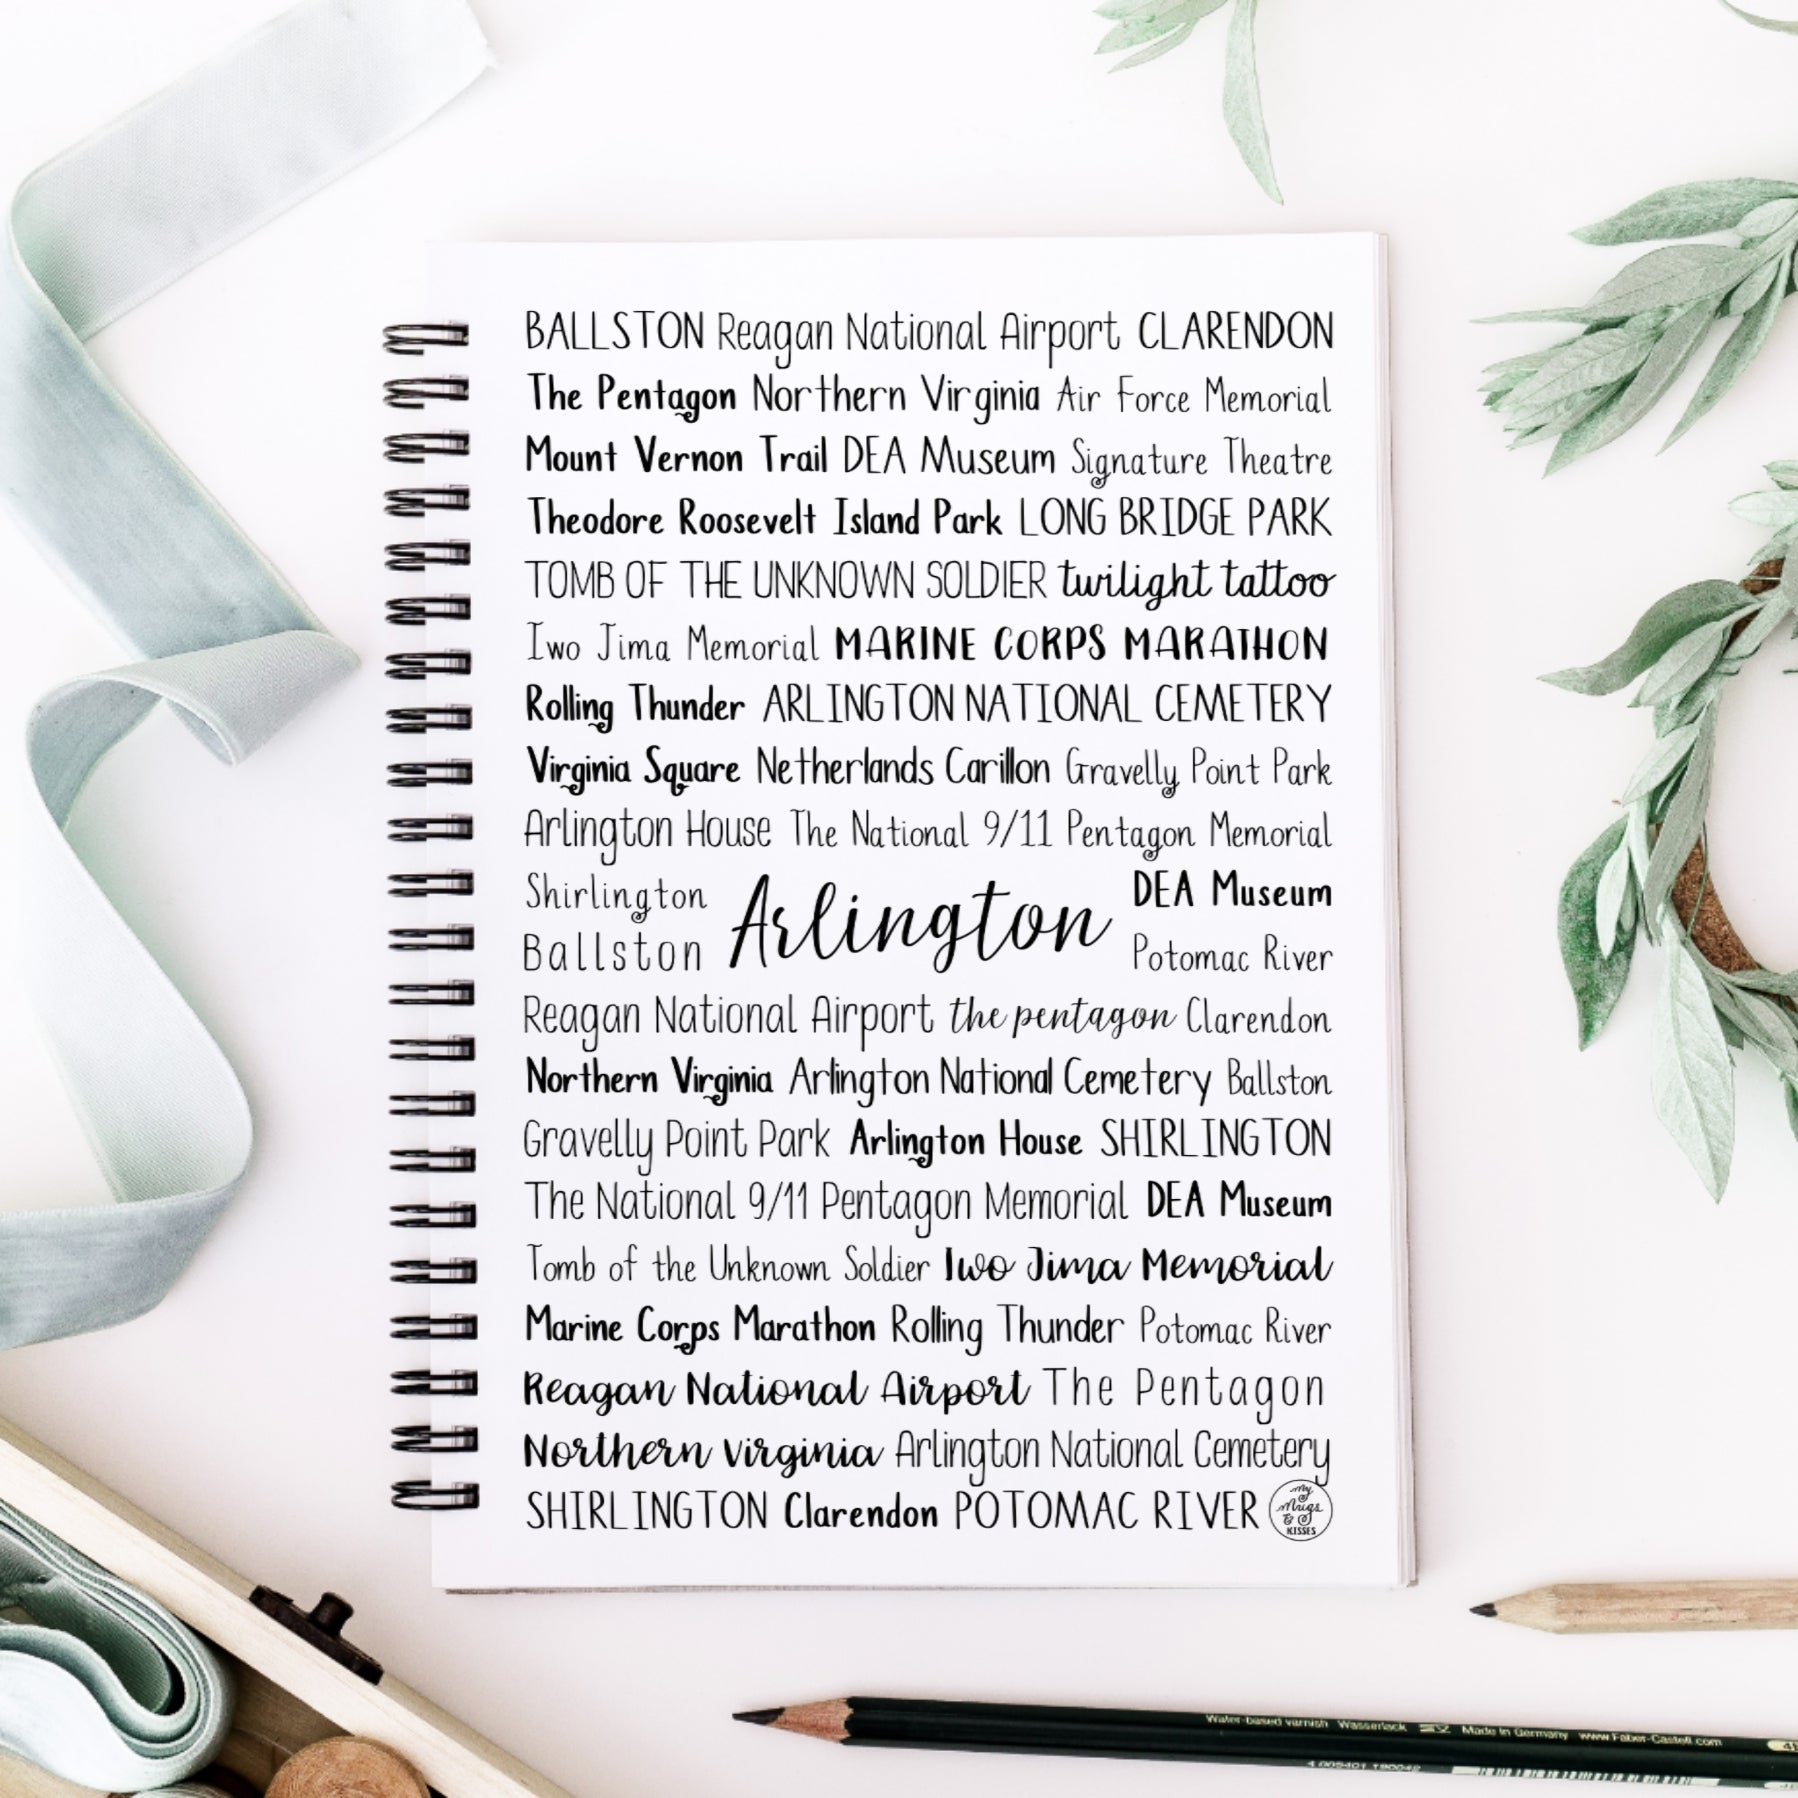 BALLSTON Reagan National Airport CLARENDON
The Pentagon Northern Virginia Air Force Memorial
Mount Vernon Trail DEA Museum Signature Theatre
Theodore Roosevelt Island Park LONG BRIDGE PARK
TOMB OF THE UNKNOWN SOLDIER twilight tattoo
Iwo Jima Memorial MARINE CORPS MARATHON
Rolling Thunder ARLINGTON NATIONAL CEMETERY
Virginia Square Netherlands Carillon Gravelly Point Park
Arlington House The National 9/11 Pentagon Memorial
Shirlington
Ballston
Arlington
DEA Museum
Potomac River
Reagan National Airport the pentagon Clarendon
Northern Virginia Arlington National Cemetery Ballston
Gravelly Point Park Arlington House SHIRLINGTON
The National 9/11 Pentagon Memorial DEA Museum
Tomb of the Unknown Soldier Iwo Jima Memorial
Marine Corps Marathon Rolling Thunder Potomac River
Reagan National Airport The Pentagon
Northern Virginia Arlington National Cemetery
SHIRLINGTON Clarendon POTOMAC RIVER
My
Mugs
&
KISSES
Water-based varnish Wasserlack Made in Germany www.Faber-Castell.com
4 005401 190042